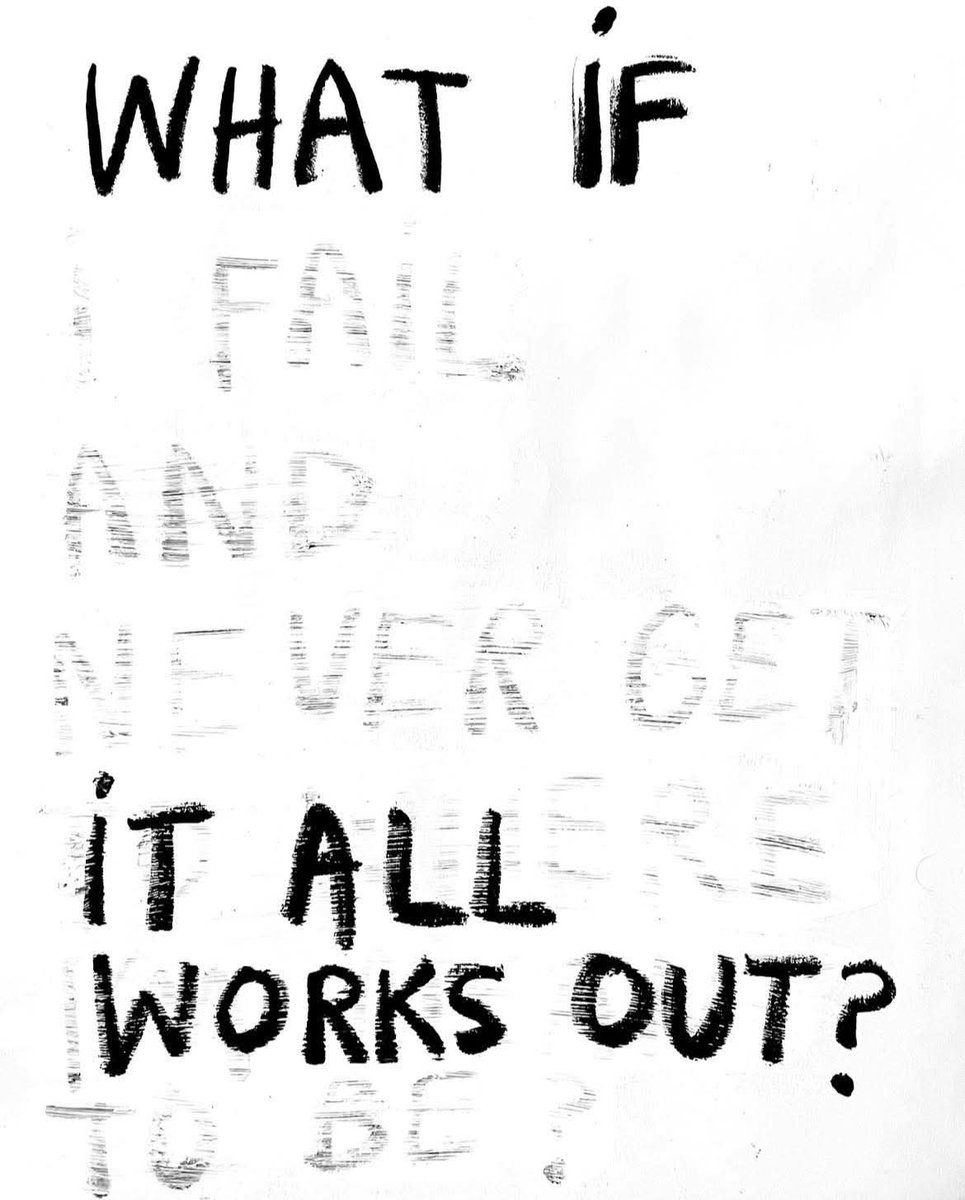 WHAT IF
I FAIL
AND
NEVER GET
IT ALL
WORKS OUT?
TO BE ?